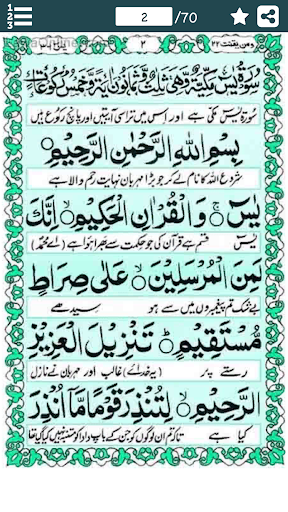 1
2
3
2 /70
٢
سُوْرَةُ يٰسٓ مَكِّيَّةٌ وَّهِيَ ثَلٰثٌ وَّثَمَانُوْنَ اٰيَةً وَّخَمْسُ رُكُوْعَاتٍ
سورہ یٰس مکی ہے اور اس میں تراسی آیتیں اور پانچ رکوع ہیں
بِسْمِ اللّٰهِ الرَّحْمٰنِ الرَّحِيْمِ
شروع اللہ کا نام لے کر جو بڑا مہربان نہایت رحم والا ہے
يٰسٓ ۚ وَالْقُرْاٰنِ الْحَكِيْمِ ۙ اِنَّكَ
یٰس قسم ہے قرآن کی جو حکمت سے بھرا ہوا ہے (اے محمدؐ)
لَمِنَ الْمُرْسَلِيْنَ ۙ عَلٰى صِرَاطٍ
بے شک تم پیغمبروں میں سے ہو سیدھے
مُّسْتَقِيْمٍ ؕ تَنْزِيْلَ الْعَزِيْزِ
رستے پر (یہ خدائے) غالب اور مہربان نے نازل
الرَّحِيْمِ ۙ لِتُنْذِرَ قَوْمًا مَّآ اُنْذِرَ
کیا ہے تاکہ تم ان لوگوں کو جن کے باپ دادا کو متنبہ نہیں کیا گیا تھا